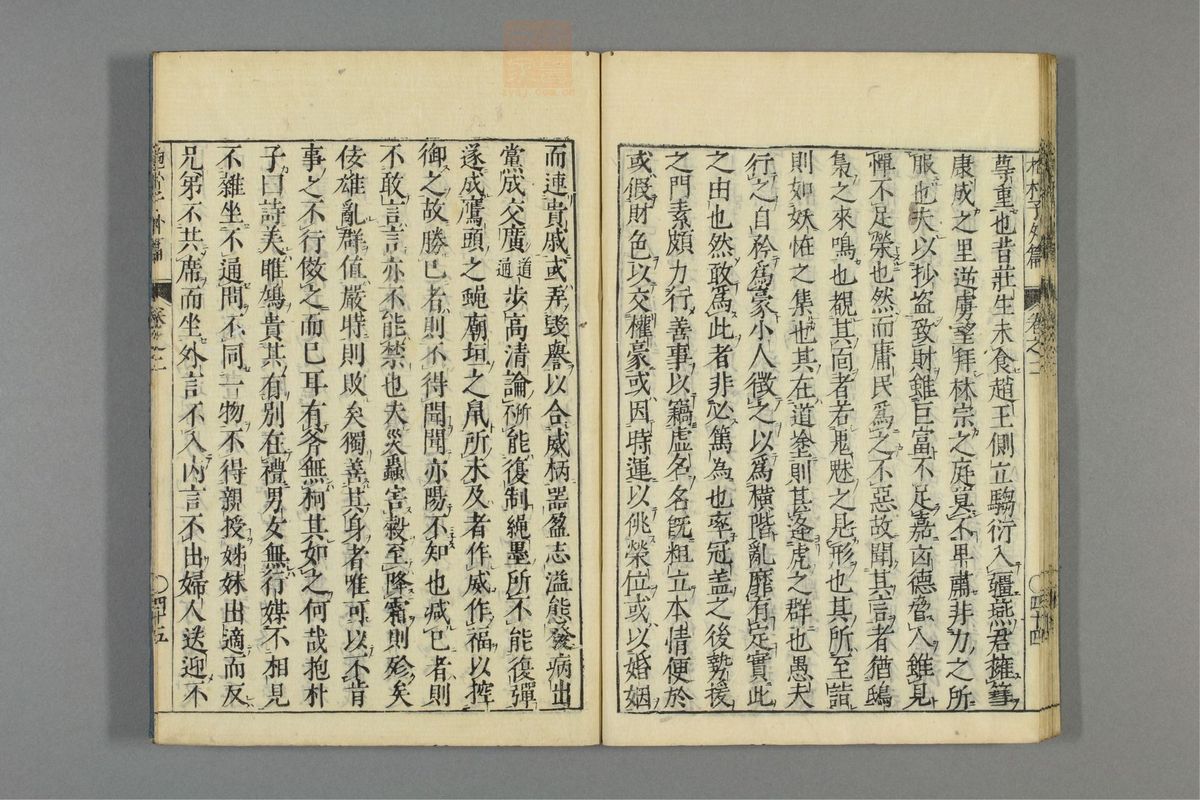 抱朴子外篇 卷之二 ○四十四
尊重也昔莊生未食趙王側立騶衍入疆燕君擁篲
康成之里逆虜望拜林宗之庭莫不卑肅非力之所
服也夫以抄盗致財雖巨富不足嘉凶德脅人雖見
憚不足榮也然而庸民爲之不惡故聞其言者猶鴟
梟之來鳴也觀其面者若鬼魅之見形也其所至詣
則如妖怪之集也其在道塗則甚逢虎之群也愚夫
行之自矜爲豪小人徵之以爲橫階亂靡有定實此
之由也然敢爲此者非必篤為也率冠盖之後勢援
之門素頗力行善事以竊虛名名既粗立本情便於
或假財色以交權豪或因時運以佻榮位或以婚姻
而連貴戚或弄毀譽以合威柄器盈志溢態發病出
黨成交廣道通步高清論所不能復制繩墨所不能復彈
遂成鷹頭之蠅廟垣之鼠所未及者作威作福以控
御之故勝已者則不得聞聞亦陽不知也減已者則
不敢言言亦不能禁也夫災蟲害穀至降霜則殄矣
佞雄亂群值嚴時則敗矣獨善其身者唯可以不肯
事之不行傚之而已耳有斧無柯其如之何哉抱朴
子曰詩美雎鳩貴其有別在禮男女無行媒不相見
不雜坐不通問不同一物不得親授姊妹出適而反
兄弟不共席而坐外言不入內言不出婦人送迎不
○四十五